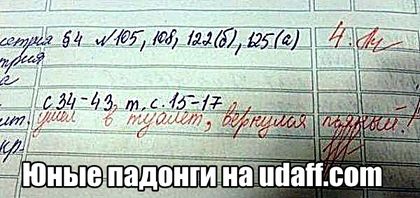 сетрия §4 №105, 108, 122(б), 125(а) 4.
трия
а
с.34-43, т. с.15-17
ит. ушел в туалет, вернулся пьяный!
кр-
Юные падонги на udaff.com